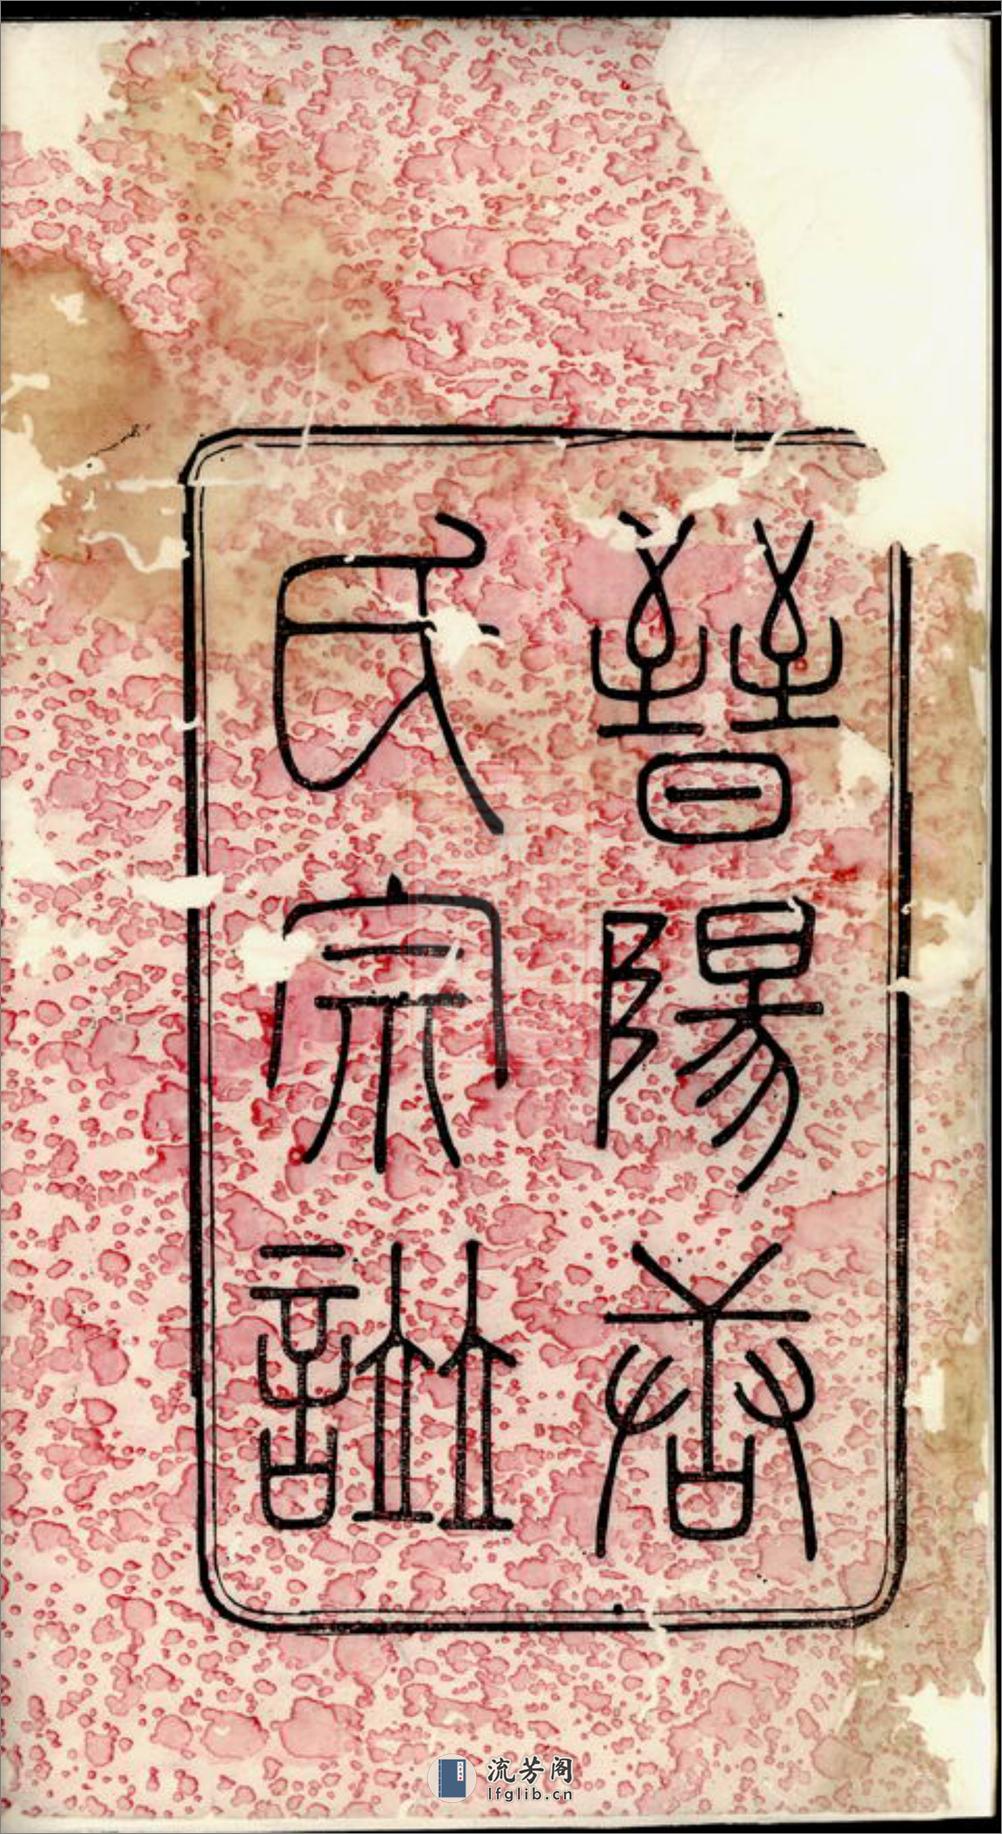 晉陽唐
氏宗譜
流芳阁
lfglib.cn